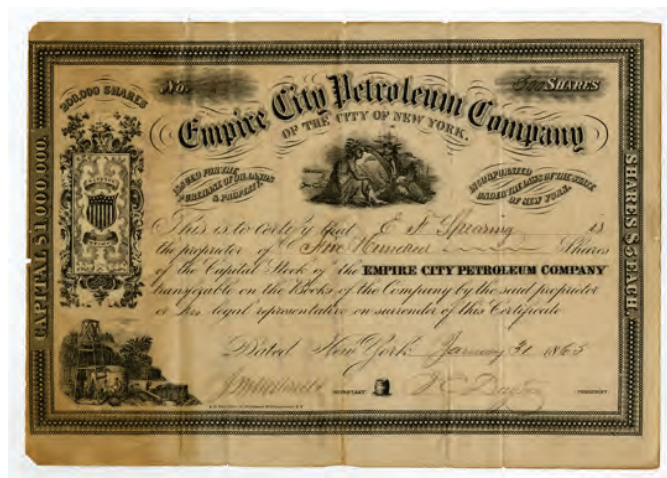 200,000 SHARES
No.
500 SHARES
Empire City Petroleum Company
OF THE CITY OF NEW YORK.
ISSUED FOR THE
PURCHASE OF OIL LANDS
& PROPERTY.
INCORPORATED
UNDER THE LAWS OF THE STATE
OF NEW YORK.
CAPITAL $1,000,000.
SHARES $5 EACH.
This is to certify that E Spearing is
the proprietor of Five Hundred Shares
of the Capital Stock of the EMPIRE CITY PETROLEUM COMPANY
transferable on the Books of the Company by the said proprietor
or his legal representative on surrender of this Certificate
Dated New York January 31 1865
SECRETARY
PRESIDENT